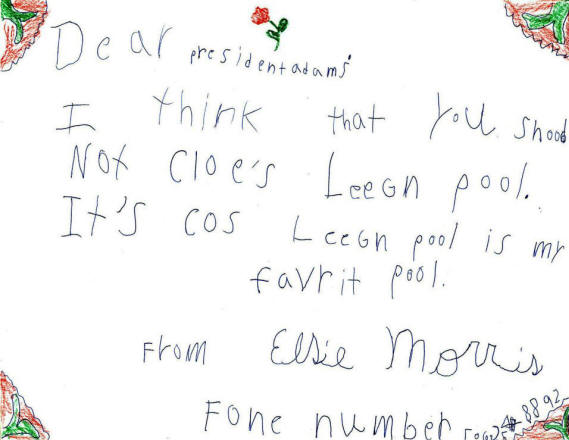 Dear presidentadams'
I think that you shood
Not Cloe's Leeon pool.
It's cos Leeon pool is my
favrit pool.
From Elsie Morris
Fone number 8892